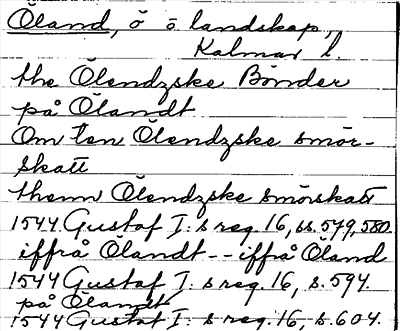 Öland, ö o landskap,
Kalmar l.
the Ölendzske Bönder
på Ölandt
Om ten Ölendzske smör-
skatt
themn Ölendzske smörskatt
1544 Gustaf I:s reg. 16, ss. 579, 580.
iffrå Ölandt -- iffrå Öland
1544 Gustaf I:s reg. 16, s. 594.
på Ölandt
1544 Gustaf I:s reg. 16, s. 604.